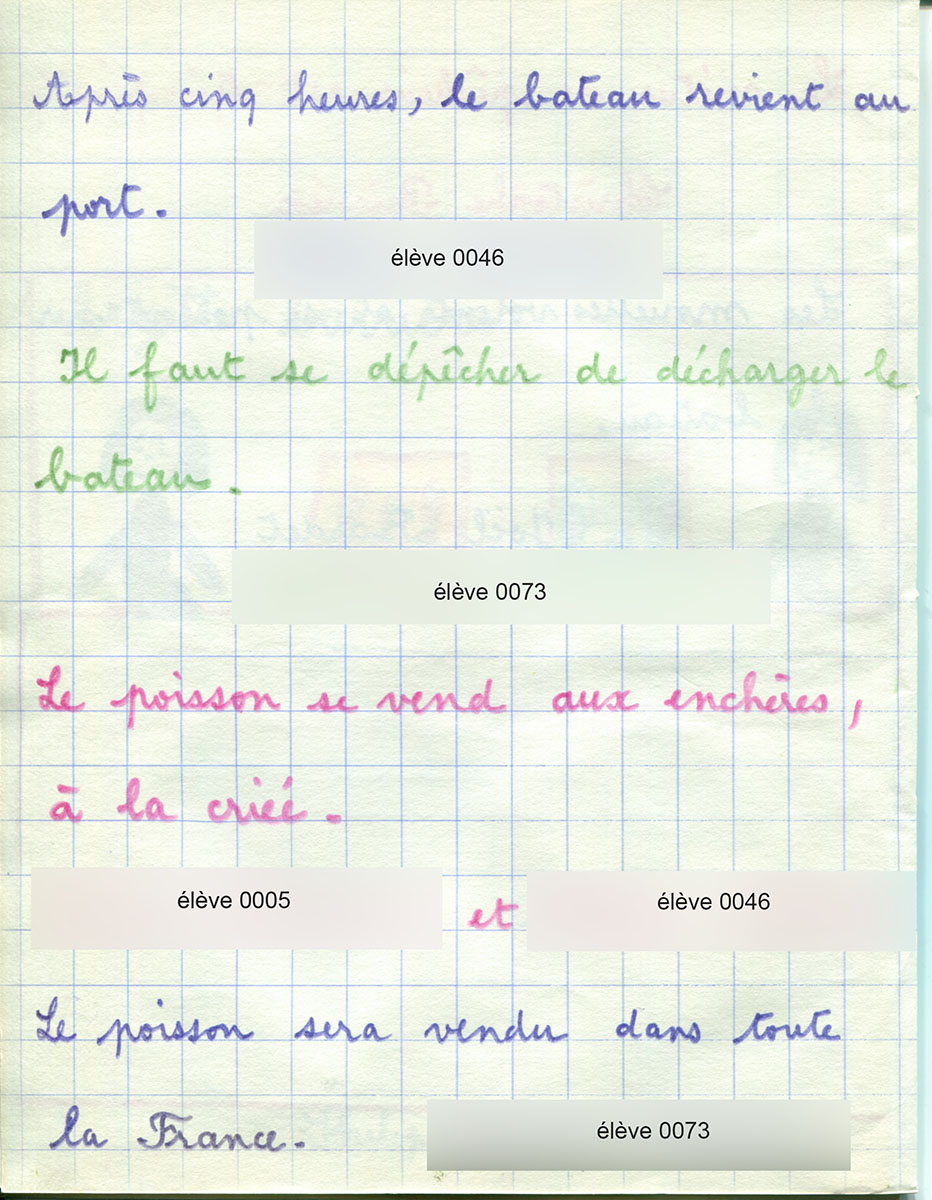 Après cinq heures, le bateau revient au
port.
élève 0046
Il faut se dépêcher de décharger le
bateau.
élève 0073
Le poisson se vend aux enchères,
à la criée.
élève 0005 et élève 0046
Le poisson sera vendu dans toute
la France. élève 0073